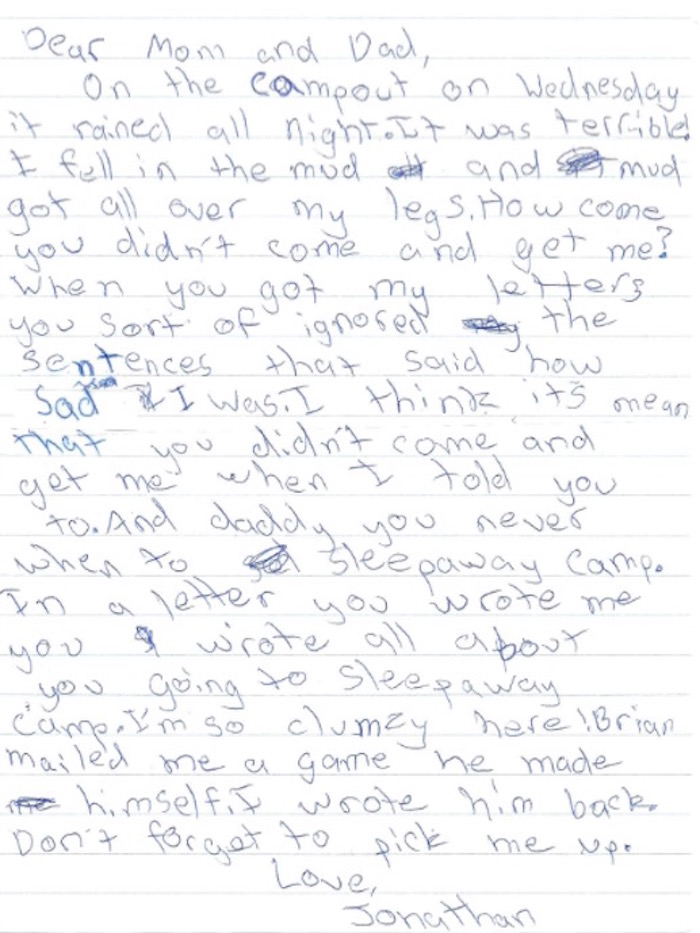 Dear Mom and Dad,
On the campout on Wednesday
it rained all night. It was terrible!
I fell in the mud and mud
got all over my legs. How come
you didn't come and get me?
When you got my letters
you sort of ignored the
sentences that said how
sad I was. I think it's mean
that you didn't come and
get me when I told you
to. And daddy you never
when to sleepaway camp.
In a letter you wrote me
you wrote all about
you going to sleepaway
camp. I'm so clumzy here! Brian
mailed me a game he made
himself. I wrote him back.
Don't forget to pick me up.
Love,
Jonathan